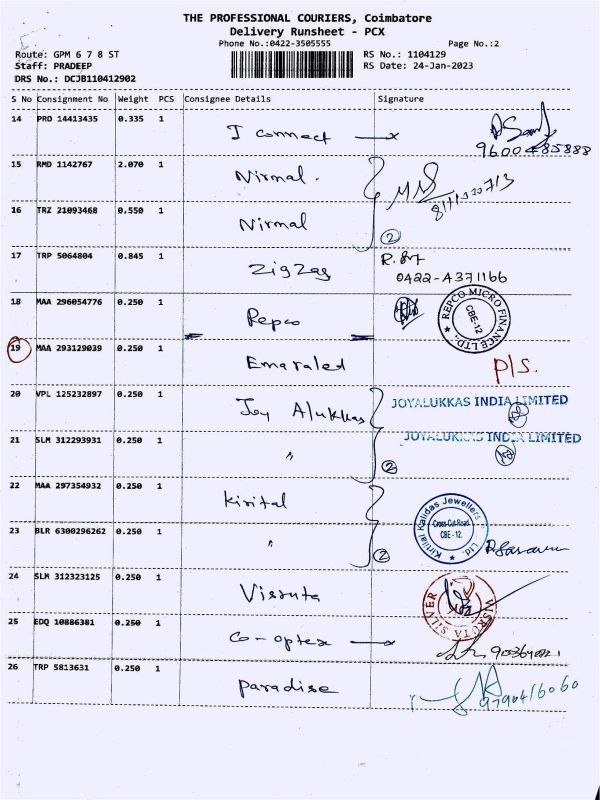 THE PROFESSIONAL COURIERS, Coimbatore
Delivery Runsheet - PCX
Phone No.:0422-3505555 Page No.:2
Route: GPM 6 7 8 ST RS No.: 1104129
Staff: PRADEEP RS Date: 24-Jan-2023
DRS No.: DCJB110412902
S No Consignment No Weight PCS Consignee Details Signature
14 PRO 14413435 0.335 1
I connect
9600485888
15 RMD 1142767 2.070 1
Nirmal.
16 TRZ 21093468 0.550 1
Nirmal
2
17 TRP 5064804 0.845 1
ZigZag
0422-4371166
18 MAA 296054776 0.250 1
Repco
REPCO MICRO FINANCE LTD.,
CBE-12
19 MAA 293129039 0.250 1
Emaraled
P/S.
20 VPL 125232897 0.250 1
Joy Alukkas
JOYALUKKAS INDIA LIMITED
21 SLM 312293931 0.250 1
"
JOYALUKKAS INDIA LIMITED
2
22 MAA 297354932 0.250 1
Kirital
Kirtilal Kalidas Jewellers Ltd.
Cross-Cut-Road
CBE - 12.
23 BLR 6300296262 0.250 1
"
2
24 SLM 312323125 0.250 1
Visruta
VISRUTA SILVER
25 EDQ 10886381 0.250 1
Co-optex
26 TRP 5813631 0.250 1
Paradise
9790416060